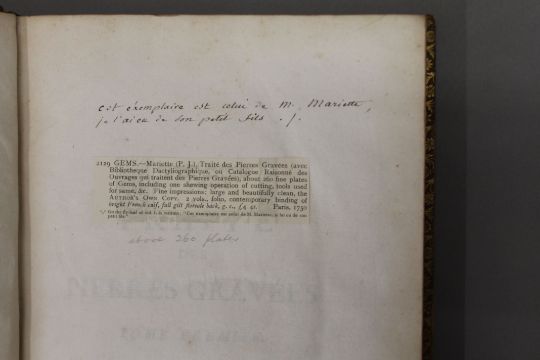 cet éxemplaire est celui de M. Mariette,
je l'ai eu de son petit fils ./.
2129 GEMS.—Mariette (P. J.), Traité des Pierres Gravées (avec
Bibliothèque Dactyliographique, ou Catalogue Raisonné des
Ouvrages qui traitent des Pierres Gravées), about 260 fine plates
of Gems, including one shewing operation of cutting, tools used
for same, &c. Fine impressions: large and beautifully clean, the
AUTHOR'S OWN COPY. 2 vols., folio, contemporary binding of
bright French calf, full gilt floreate back, g. e., £4 4s. Paris, 1750
On the fly-leaf of vol. 1. is written: "Cet exemplaire est celui de M. Mariette, je l'ai eu de son
petit fils."
above 260 plates
PIERRES GRAVÉES
TOME PREMIER